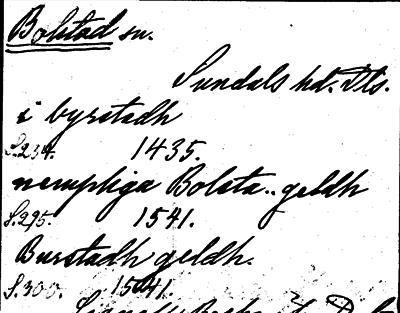 Bolstad sn.
Sundals hd. Dls.
i byrstadh
S.234. 1435.
nempliga Bolsta..geldh
S.295. 1541.
Burstadh geldh.
S.300. 1541.